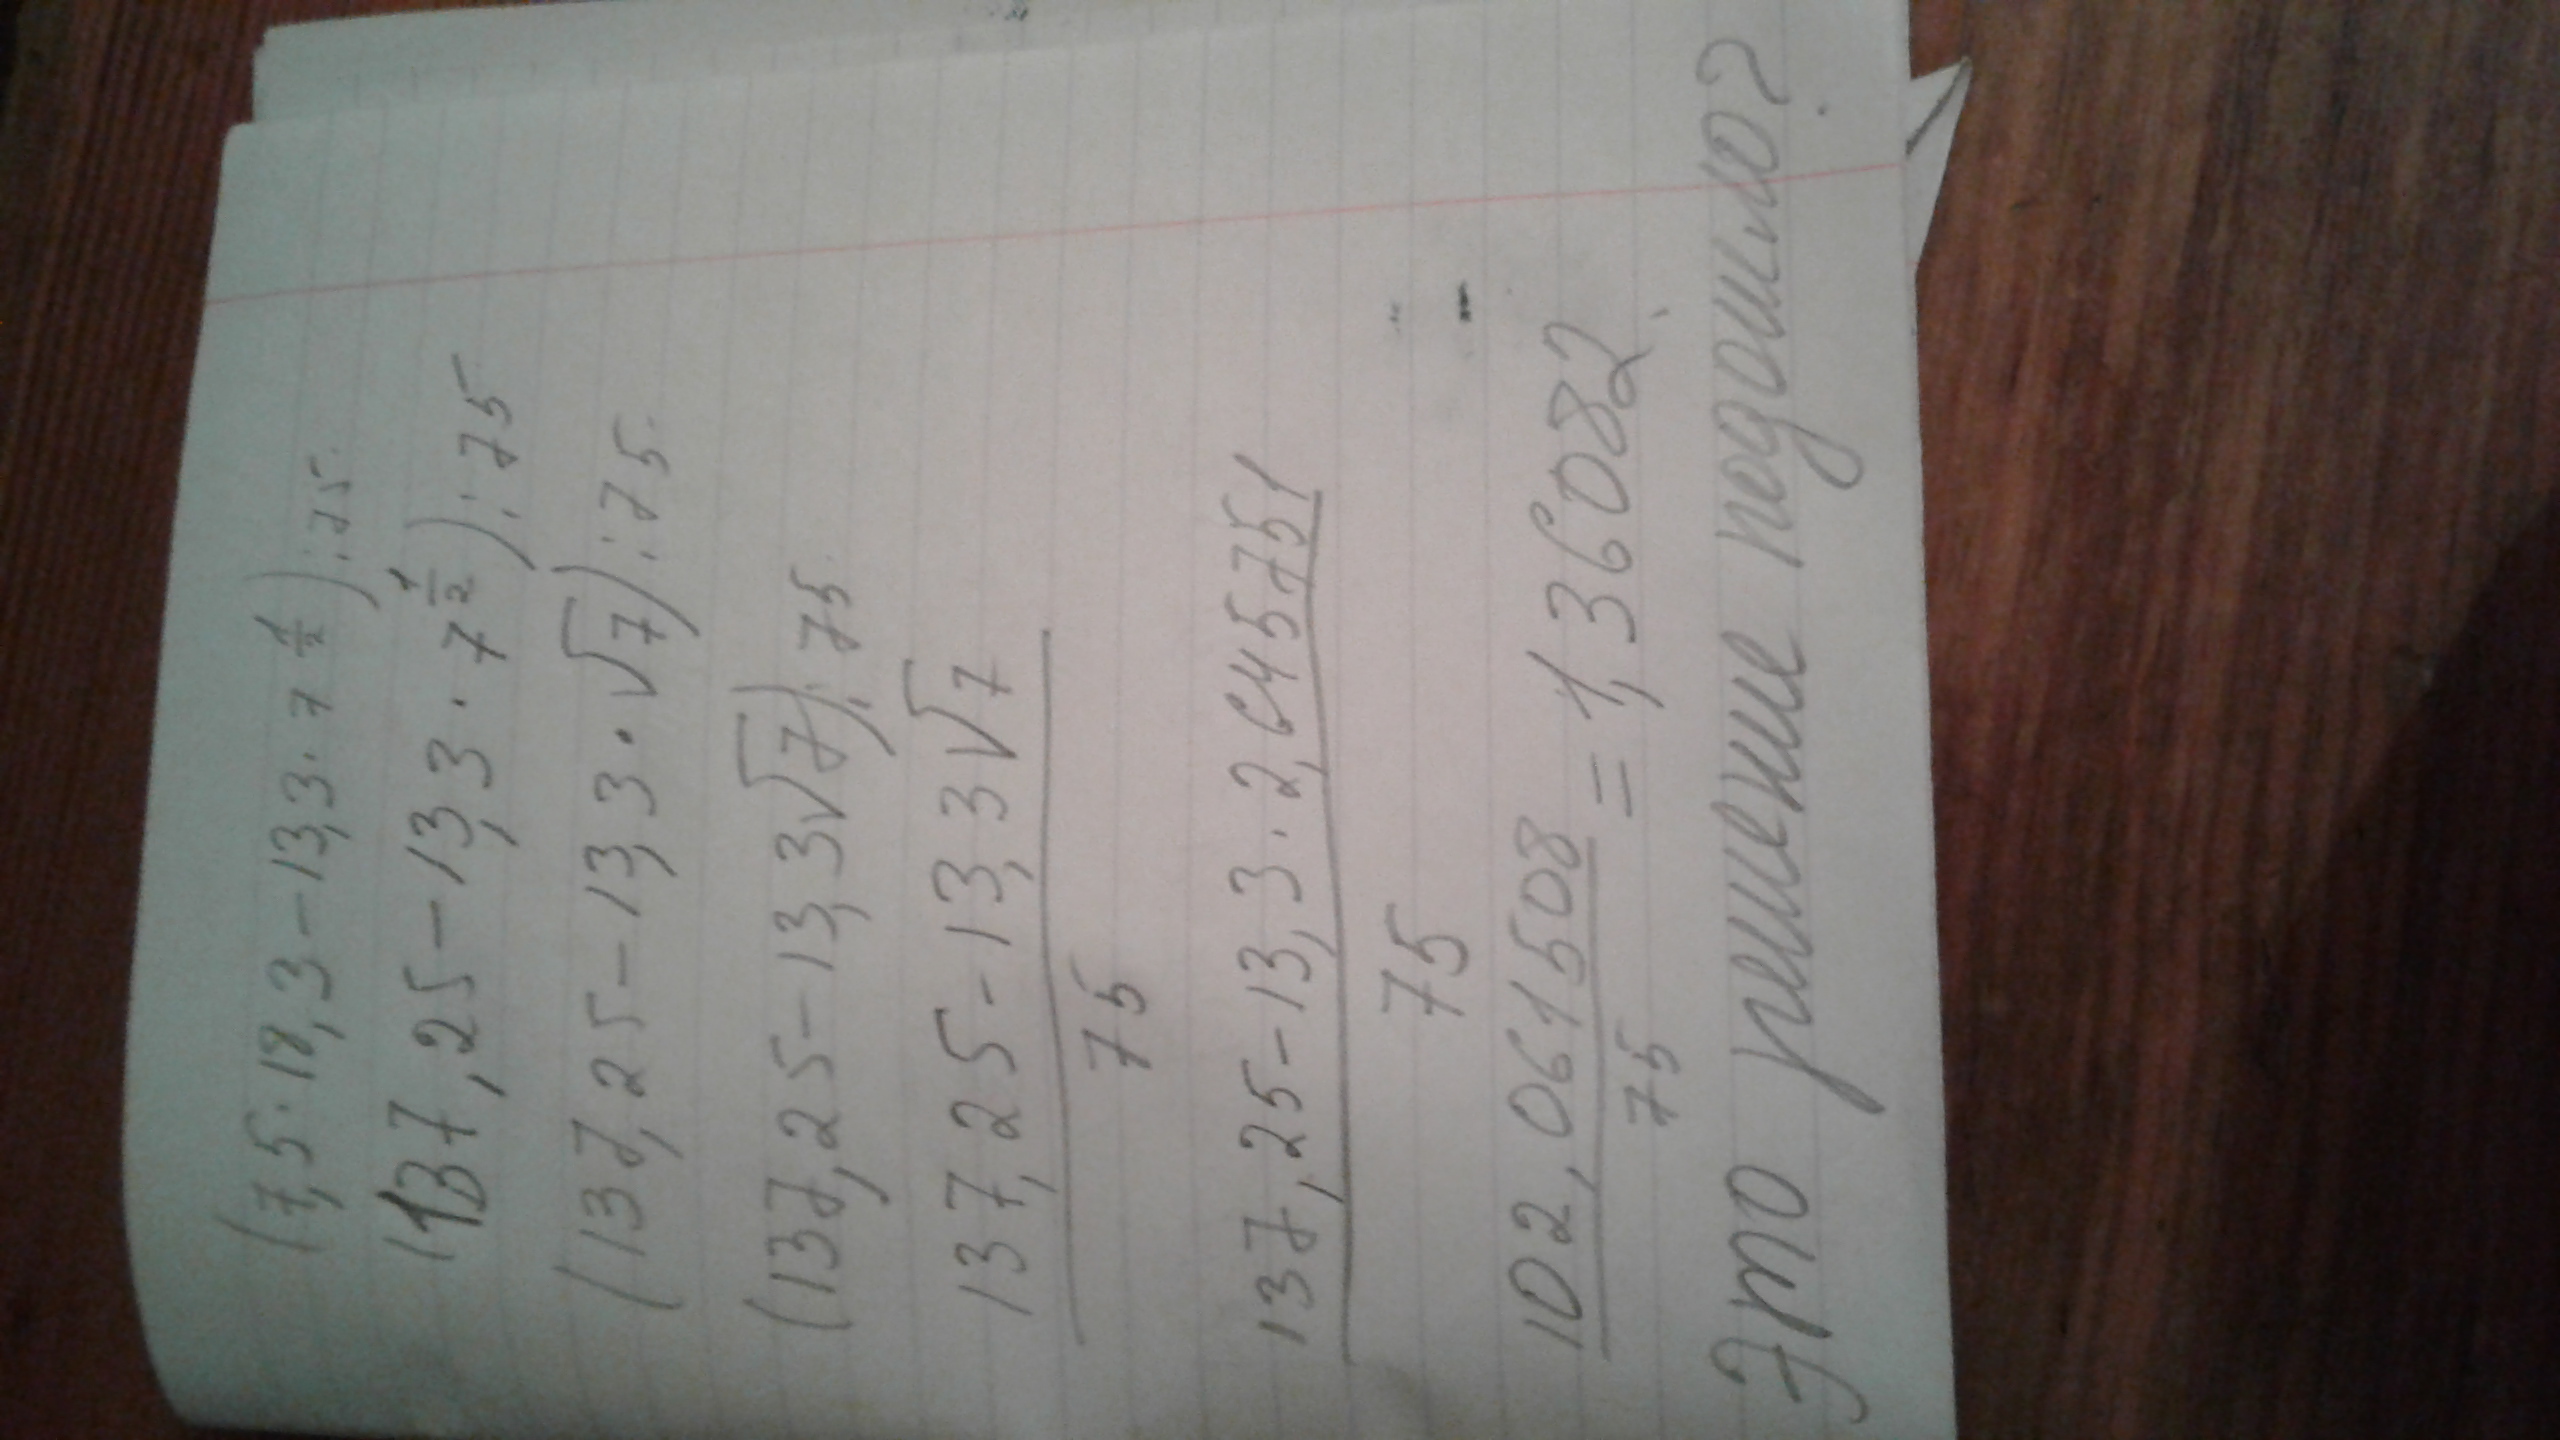 (7,5·18,3-13,3·7 1/2):75.
(137,25-13,3·7 1/2):75
(137,25-13,3·√7):75.
(137,25-13,3√7):75.
137,25-13,3√7
75
137,25-13,3·2,645751
75
102,061508 = 1,36082.
75
Это решение подошло?